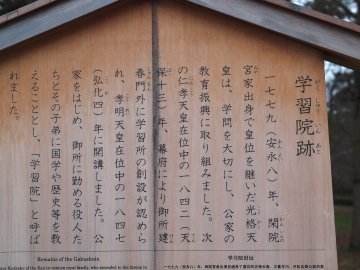 学習院跡
一七七九（安永八）年、閑院
宮家出身で皇位を継いだ光格天
皇は、学問を大切にし、公家の
教育振興に取り組みました。次
の仁孝天皇在位中の一八四二（天
保十三）年、幕府により御所建
春門外に学習所の創設が認めら
れ、孝明天皇在位中の一八四七
（弘化四）年に開講しました。公
家をはじめ、御所に勤める役人た
ちとその子弟に国学や歴史等を教
えることとし、「学習院」と呼ば
れました。
Remains of the Gakushuin